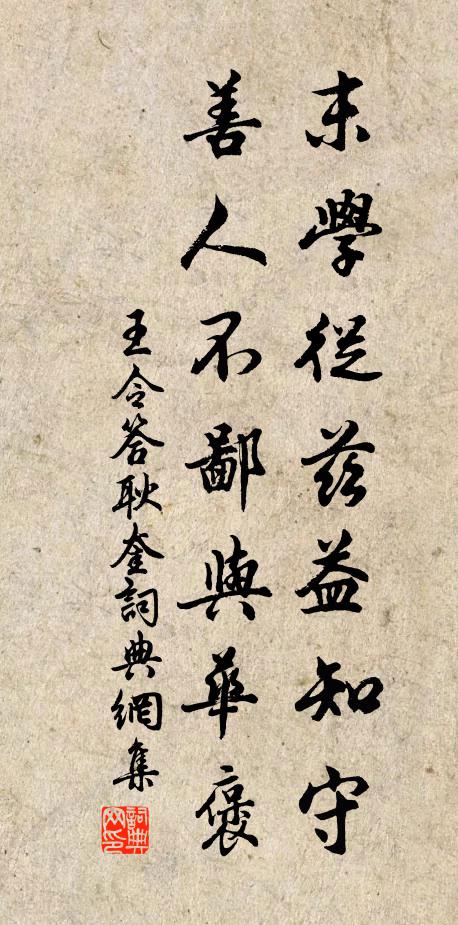 末學從茲益知守
善人不鄙與華褒
王令答耿奎詞典網集
詞典網印